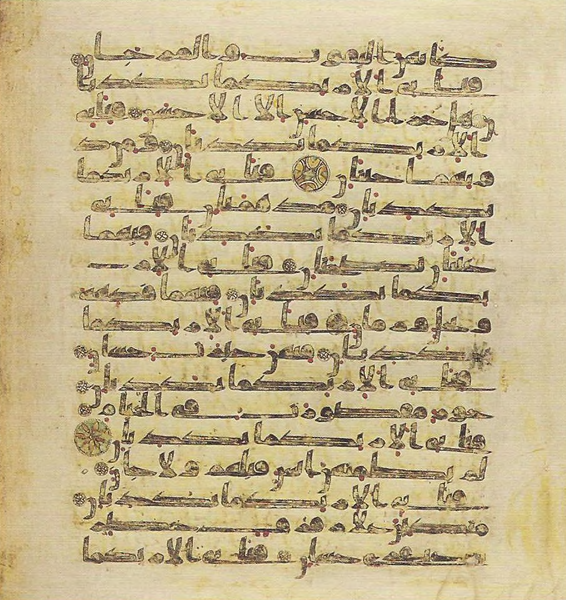 كانهن الياقوت والمرجان
فباي الا ربكما تكذبان
هل جزا الاحسن الا الاحسن فباي
الا ربكما تكذبان ومن د
ونهما جنتان فباي الا ربكما
تكذبان مدهامتان فباي
الا ربكما تكذبان فيهما
عينان نضاختان فباي الا
ربكما تكذبان فيهما فكهة
ونخل ورمان فباي الا ربكما
تكذبان فيهن خيرت حسان
فباي الا ربكما تكذبان
حور مقصورت في الخيام
فباي الا ربكما تكذبان
لم يطمثهن انس قبلهم ولا جان
فباي الا ربكما تكذبان
متكين على رفرف خضر
وعبقري حسان فباي الا ربكما